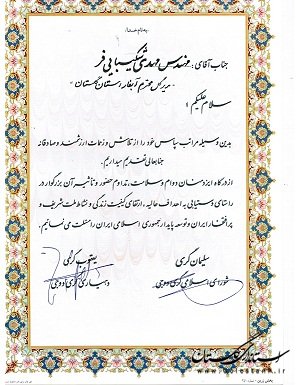 بنام خدا
جناب آقای : مهندس مهدی شکیبایی فر
مدیرکل محترم آبفار استان گلستان
سلام علیکم ؛
بدین وسیله مراتب سپاس خود را از تلاش و زحمات ارزشمند و صادقانه
جنابعالی تقدیم میدارم .
از درگاه ایزد منان دوام و سلامت ، تداوم حضور و تأثیر آن بزرگوار در
راستای دستیابی به اهداف عالیه ، ارتقای کیفیت زندگی و نشاط ملت شریف و
پرافتخار ایران و توسعه پایدار جمهوری اسلامی ایران را مسئلت می نمائیم .
سلیمان کرمی
یعقوب کرمی
شورای اسلامی
دهیاری
استانداری گلستان